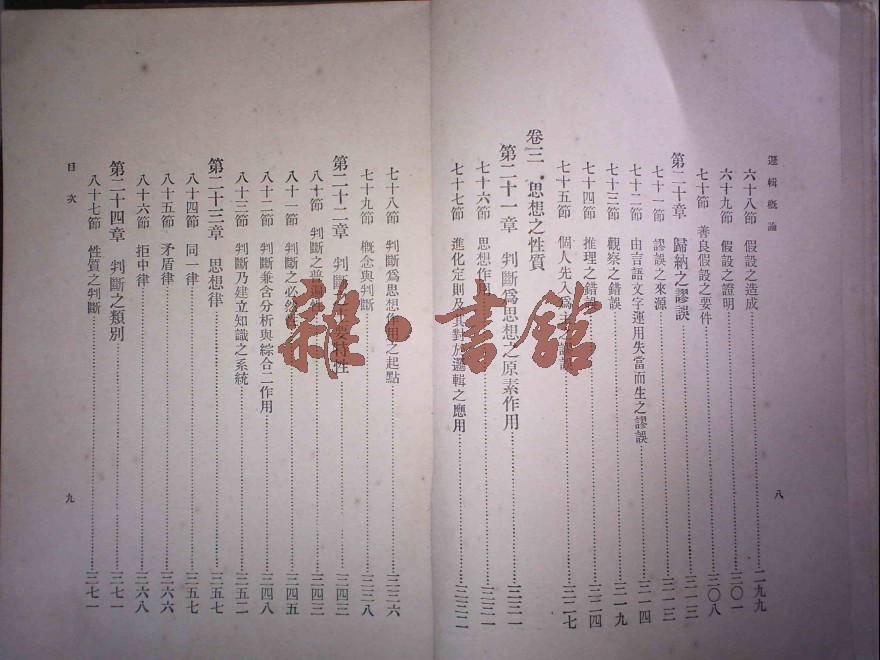 邏輯概論
六十八節 假設之造成 二九九
六十九節 假設之證明 三〇一
七十節 善良假設之要件 三〇八
第二十章 歸納之謬誤 三一三
七十一節 謬誤之來源 三一三
七十二節 由言語文字運用失當而生之謬誤 三一四
七十三節 觀察之錯誤 三一九
七十四節 推理之錯誤 三二四
七十五節 個人先入爲主之 三二七
卷三 思想之性質
第二十一章 判斷爲思想之原素作用 三三一
七十六節 思想作用 三三一
七十七節 進化定則及其對於邏輯之應用 三三二
八
七十八節 判斷爲思想作用之起點 三三六
七十九節 概念與判斷 三三八
第二十二章 判斷之主要特性 三四三
八十節 判斷之普遍性 三四三
八十一節 判斷之必然性 三四五
八十二節 判斷兼含分析與綜合二作用 三四八
八十三節 判斷乃建立知識之系統 三五二
第二十三章 思想律 三五七
八十四節 同一律 三五七
八十五節 矛盾律 三六六
八十六節 拒中律 三六八
第二十四章 判斷之類別 三七一
八十七節 性質之判斷 三七一
目次
九
雜·書館